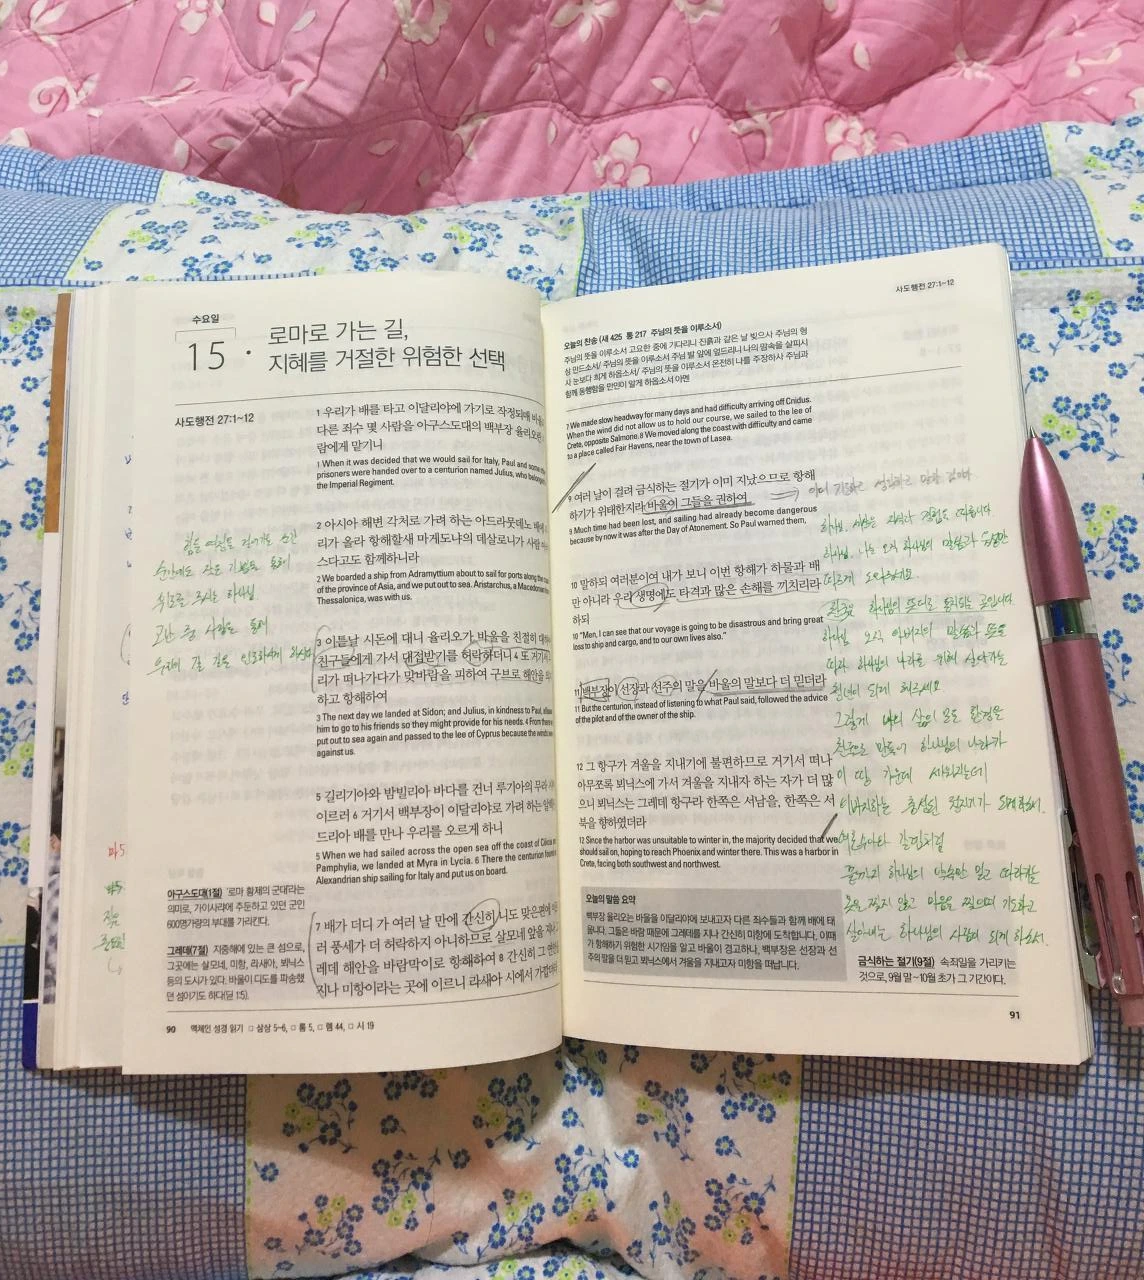 수요일
15 · 로마로 가는 길,
지혜를 거절한 위험한 선택
사도행전 27:1~12
1 우리가 배를 타고 이달리야에 가기로 작정되매 바울과
다른 죄수 몇 사람을 아구스도대의 백부장 율리오란
람에게 맡기니
1 When it was decided that we would sail for Italy, Paul and some
prisoners were handed over to a centurion named Julius, who belonged
the Imperial Regiment.
2 아시아 해변 각처로 가려 하는 아드라뭇데노 배에
리가 올라 항해할새 마게도냐의 데살로니가 사람
스다고도 함께하니라
2 We boarded a ship from Adramyttium about to sail for ports along the
of the province of Asia, and we put out to sea. Aristarchus, a Macedonian
Thessalonica, was with us.
3 이튿날 시돈에 대니 율리오가 바울을 친절히
친구들에게 가서 대접받기를 허락하더니 4 또 거기서
리가 떠나가다가 맞바람을 피하여 구브로 해안을
하고 항해하여
3 The next day we landed at Sidon; and Julius, in kindness to Paul,
him to go to his friends so they might provide for his needs. 4 From there
put out to sea again and passed to the lee of Cyprus because the winds
against us.
5 길리기아와 밤빌리아 바다를 건너 루기아의 무라
이르러 6 거기서 백부장이 이달리야로 가려 하는
드리아 배를 만나 우리를 오르게 하니
5 When we had sailed across the open sea off the coast of Cilicia
Pamphylia, we landed at Myra in Lycia. 6 There the centurion
Alexandrian ship sailing for Italy and put us on board.
7 배가 더디 가 여러 날 만에 간신히 니도 맞은편에
러 풍세가 더 허락하지 아니하므로 살모네 앞을
레데 해안을 바람막이로 항해하여 8 간신히 그 연안을
지나 미항이라는 곳에 이르니 라새아 시에서
힘든 여정을 걸어가는 순간
순간에도 작은 기쁨을 통해
위로를 주시는 하나님
고난 중 사람을 통해
아구스도대(1절) '로마 황제의 군대'라는
의미로, 가이사랴에 주둔하고 있던 군인
600명가량의 부대를 가리킨다.
그레데(7절) 지중해에 있는 큰 섬으로,
그곳에는 살모네, 미항, 라새아, 뵈닉스
등의 도시가 있다. 바울이 디도를 파송했
던 섬이기도 하다(딛 1:5).
90 맥체인 성경 읽기 □ 삼상 5~6, □ 롬 5, □ 렘 44, □ 시 19
사도행전 27:1~12
오늘의 찬송 (새 425 통 217 주님의 뜻을 이루소서)
주님의 뜻을 이루소서 고요한 중에 기다리니 진흙과 같은 날 빚으사 주님의 형
상 만드소서/ 주님의 뜻을 이루소서 주님 발 앞에 엎드리니 나의 맘속을 살피시
사 눈보다 희게 하옵소서/ 주님의 뜻을 이루소서 온전히 나를 주장하사 주님과
함께 동행함을 만민이 알게 하옵소서 아멘
7 We made slow headway for many days and had difficulty arriving off Cnidus.
When the wind did not allow us to hold our course, we sailed to the lee of
Crete, opposite Salmone. 8 We moved along the coast with difficulty and came
to a place called Fair Havens, near the town of Lasea.
9 여러 날이 걸려 금식하는 절기가 이미 지났으므로 항해
하기가 위태한지라 바울이 그들을 권하여
9 Much time had been lost, and sailing had already become dangerous
because by now it was after the Day of Atonement. So Paul warned them,
10 말하되 여러분이여 내가 보니 이번 항해가 하물과 배
만 아니라 우리 생명에도 타격과 많은 손해를 끼치리라
하되
10 "Men, I can see that our voyage is going to be disastrous and bring great
loss to ship and cargo, and to our own lives also."
11 백부장이 선장과 선주의 말을 바울의 말보다 더 믿더라
11 But the centurion, instead of listening to what Paul said, followed the advice
of the pilot and of the owner of the ship.
12 그 항구가 겨울을 지내기에 불편하므로 거기서 떠나
아무쪼록 뵈닉스에 가서 겨울을 지내자 하는 자가 더 많
으니 뵈닉스는 그레데 항구라 한쪽은 서남을, 한쪽은 서
북을 향하였더라
12 Since the harbor was unsuitable to winter in, the majority decided that we
should sail on, hoping to reach Phoenix and winter there. This was a harbor in
Crete, facing both southwest and northwest.
하나님, 세상은 지식과 경험을 따릅니다
하나님, 나는 오직 하나님의 말씀과 음성만
따르게 도와주세요.
하나님의 뜻대로 통치되는 곳입니다
하나님 오직 아버지의 말씀과 뜻을
따라 하나님의 나라를 위해 살아가는
청년이 되게 해주세요
그렇게 나의 삶의 모든 환경을
하나님의 나라가
이 땅 가운데 세워지는데
여호수아와 갈렙처럼
끝까지 하나님의 약속만 믿고 따라가는
옷을 찢지 않고 마음을 찢으며 기도하고
살아내는 하나님의 사람이 되게 하소서.
오늘의 말씀 요약
백부장 율리오는 바울을 이달리야에 보내고자 다른 죄수들과 함께 배에 태
웁니다. 그들은 바람 때문에 그레데를 지나 간신히 미항에 도착합니다. 이때
가 항해하기 위험한 시기임을 알고 바울이 경고하나, 백부장은 선장과 선
주의 말을 더 믿고 뵈닉스에서 겨울을 지내고자 미항을 떠납니다.
금식하는 절기(9절) 속죄일을 가리키는
것으로, 9월 말~10월 초가 그 기간이다.
91